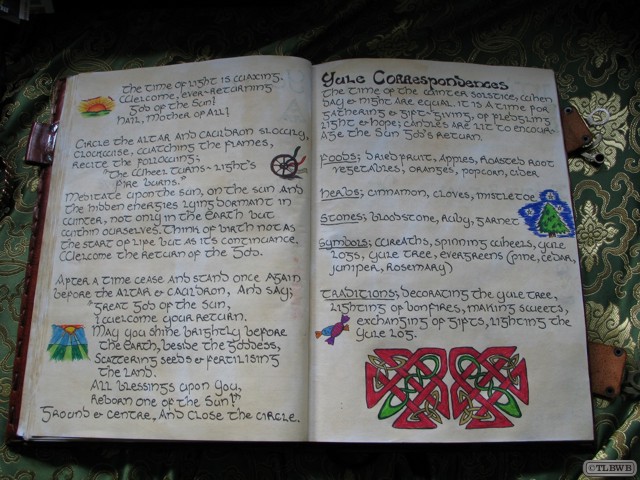 The time of light is waxing.
Welcome, ever-returning
God of the Sun!
Hail, Mother of All!
Circle the altar and cauldron slowly,
clockwise, watching the flames,
Recite the following;
"The wheel turns- light's
fire burns."
Meditate upon the sun, on the sun and
the hidden energies lying dormant in
winter, not only in the earth but
within ourselves. Think of birth not as
the start of life but as its continuance.
Welcome the return of the God.
After a time cease and stand once again
before the altar & cauldron, and say;
"Great God of the Sun,
I welcome your return.
May you shine brightly before
the Earth, beside the Goddess,
Scattering seeds & fertilising
the land.
All blessings upon you,
Reborn one of the Sun!"
Ground & centre, and close the circle.
Yule Correspondences
The time of the winter solstice, when
day & night are equal. It is a time for
gathering & gift-giving, of pledging
light & hope; candles are lit to encour-
age the Sun God's return.
Foods; dried fruit, apples, roasted root
vegetables, oranges, popcorn, cider
Herbs; cinnamon, cloves, mistletoe
Stones; bloodstone, ruby, garnet
Symbols; wreaths, spinning wheels, yule
logs, yule tree, evergreens (pine, cedar,
juniper, rosemary)
Traditions; decorating the yule tree,
lighting of bonfires, making sweets,
exchanging of gifts, lighting the
yule log.
©TLBWB